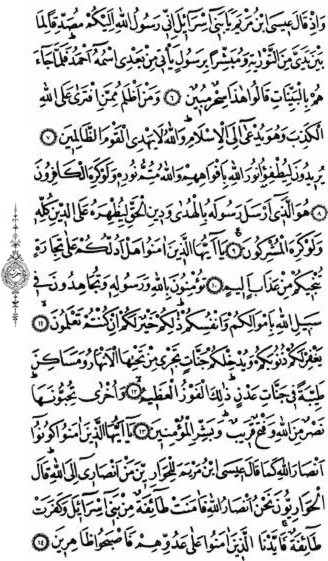 وَاِذْ قَالَ عٖيسَى ابْنُ مَرْيَمَ يَا بَنٖٓى اِسْرَٓائٖلَ اِنّٖى رَسُولُ اللّٰهِ اِلَيْكُمْ مُصَدِّقًا لِمَا
بَيْنَ يَدَىَّ مِنَ التَّوْرٰيةِ وَمُبَشِّرًا بِرَسُولٍ يَاْتٖى مِنْ بَعْدِى اسْمُهُٓ اَحْمَدُ فَلَمَّا جَٓاءَ
هُمْ بِالْبَيِّنَاتِ قَالُوا هٰذَا سِحْرٌ مُبٖينٌ ﴿٦﴾ وَمَنْ اَظْلَمُ مِمَّنِ افْتَرٰى عَلَى اللّٰهِ
الْكَذِبَ وَهُوَ يُدْعٰٓى اِلَى الْاِسْلَامِ وَاللّٰهُ لَا يَهْدِى الْقَوْمَ الظَّالِمٖينَ ﴿٧﴾
يُرٖيدُونَ لِيُطْفِؤُ۫ا نُورَ اللّٰهِ بِاَفْوَاهِهِمْ وَاللّٰهُ مُتِمُّ نُورِهٖ وَلَوْ كَرِهَ الْكَافِرُونَ
﴿٨﴾ هُوَ الَّذٖٓى اَرْسَلَ رَسُولَهُ بِالْهُدٰى وَدٖينِ الْحَقِّ لِيُظْهِرَهُ عَلَى الدّٖينِ كُلِّهٖ
وَلَوْ كَرِهَ الْمُشْرِكُونَ ﴿٩﴾ يَٓا اَيُّهَا الَّذٖينَ اٰمَنُوا هَلْ اَدُلُّكُمْ عَلٰى تِجَارَةٍ
تُنْجٖيكُمْ مِنْ عَذَابٍ اَلٖيمٍ ﴿١٠﴾ تُؤْمِنُونَ بِاللّٰهِ وَرَسُولِهٖ وَتُجَاهِدُونَ فٖى
سَبٖيلِ اللّٰهِ بِاَمْوَالِكُمْ وَاَنْفُسِكُمْ ذٰلِكُمْ خَيْرٌ لَكُمْ اِنْ كُنْتُمْ تَعْلَمُونَ ﴿١١﴾
يَغْفِرْ لَكُمْ ذُنُوبَكُمْ وَيُدْخِلْكُمْ جَنَّاتٍ تَجْرٖى مِنْ تَحْتِهَا الْاَنْهَارُ وَمَسَاكِنَ
طَيِّبَةً فٖى جَنَّاتِ عَدْنٍ ذٰلِكَ الْفَوْزُ الْعَظٖيمُ ﴿١٢﴾ وَاُخْرٰى تُحِبُّونَهَا
نَصْرٌ مِنَ اللّٰهِ وَفَتْحٌ قَرٖيبٌ وَبَشِّرِ الْمُؤْمِنٖينَ ﴿١٣﴾ يَٓا اَيُّهَا الَّذٖينَ اٰمَنُوا كُونُٓوا
اَنْصَارَ اللّٰهِ كَمَا قَالَ عٖيسَى ابْنُ مَرْيَمَ لِلْحَوَارِيّٖنَ مَنْ اَنْصَارٖٓى اِلَى اللّٰهِ قَالَ
الْحَوَارِيُّونَ نَحْنُ اَنْصَارُ اللّٰهِ فَاٰمَنَتْ طَٓائِفَةٌ مِنْ بَنٖٓى اِسْرَٓائٖلَ وَكَفَرَتْ
طَٓائِفَةٌ فَاَيَّدْنَا الَّذٖينَ اٰمَنُوا عَلٰى عَدُوِّهِمْ فَاَصْبَحُوا ظَاهِرٖينَ ﴿١٤﴾